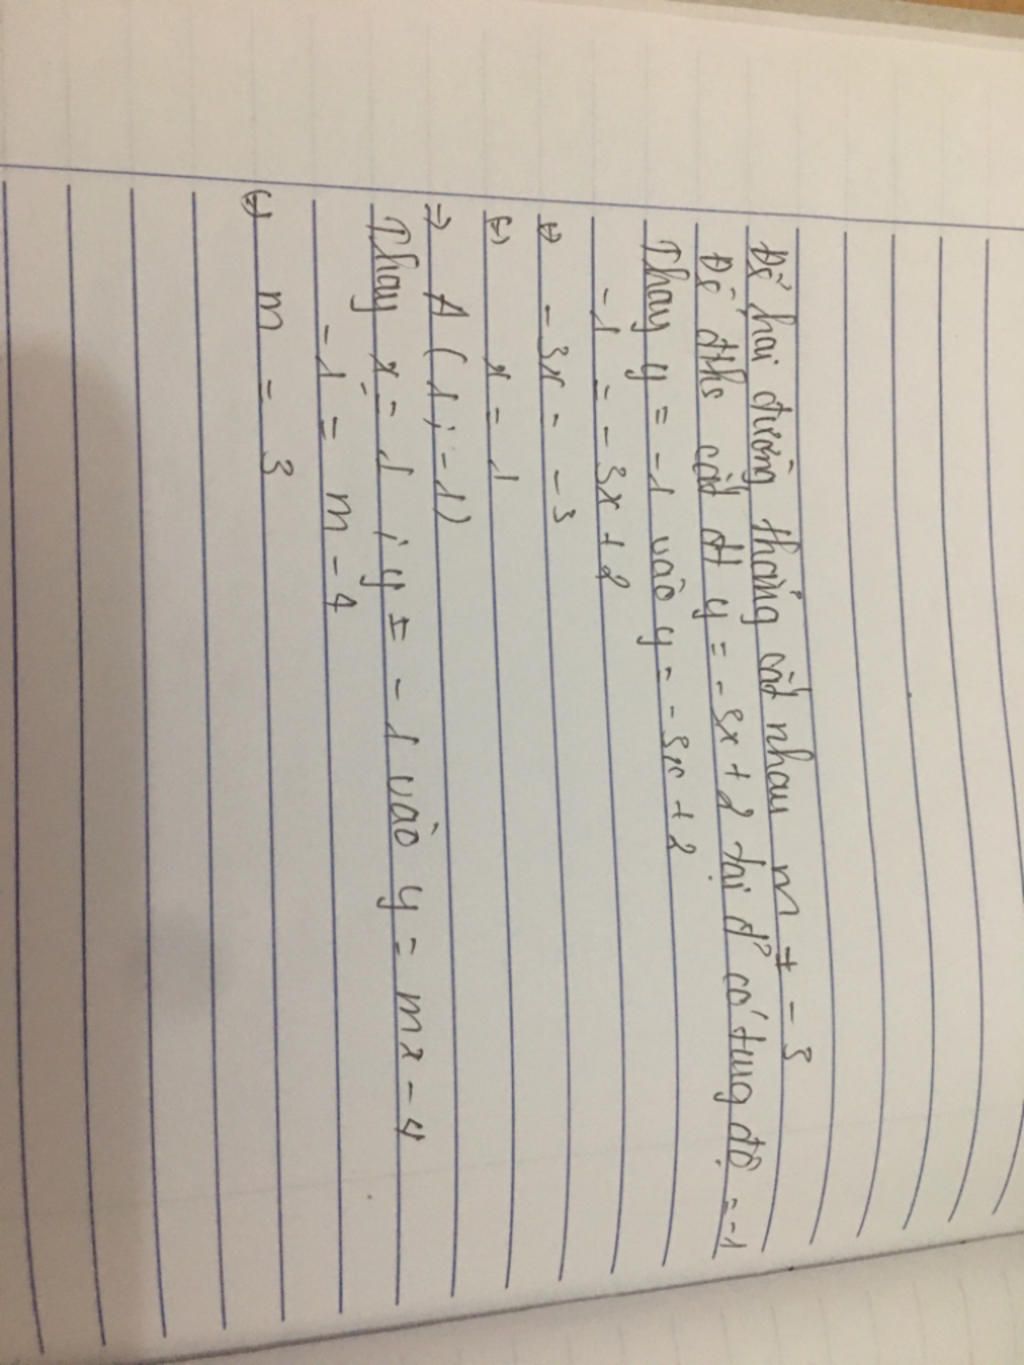 Để hai đường thẳng cắt nhau m ≠ -3
Để đths cắt đt y = -3x + 2 tại đ' có tung độ = -1
Thay y = -1 vào y = -3x + 2
-1 = -3x + 2
⇔ -3x = -3
⇔ x = 1
⇒ A (1 ; -1)
Thay x = 1 ; y = -1 vào y = mx - 4
-1 = m - 4
⇔ m = 3